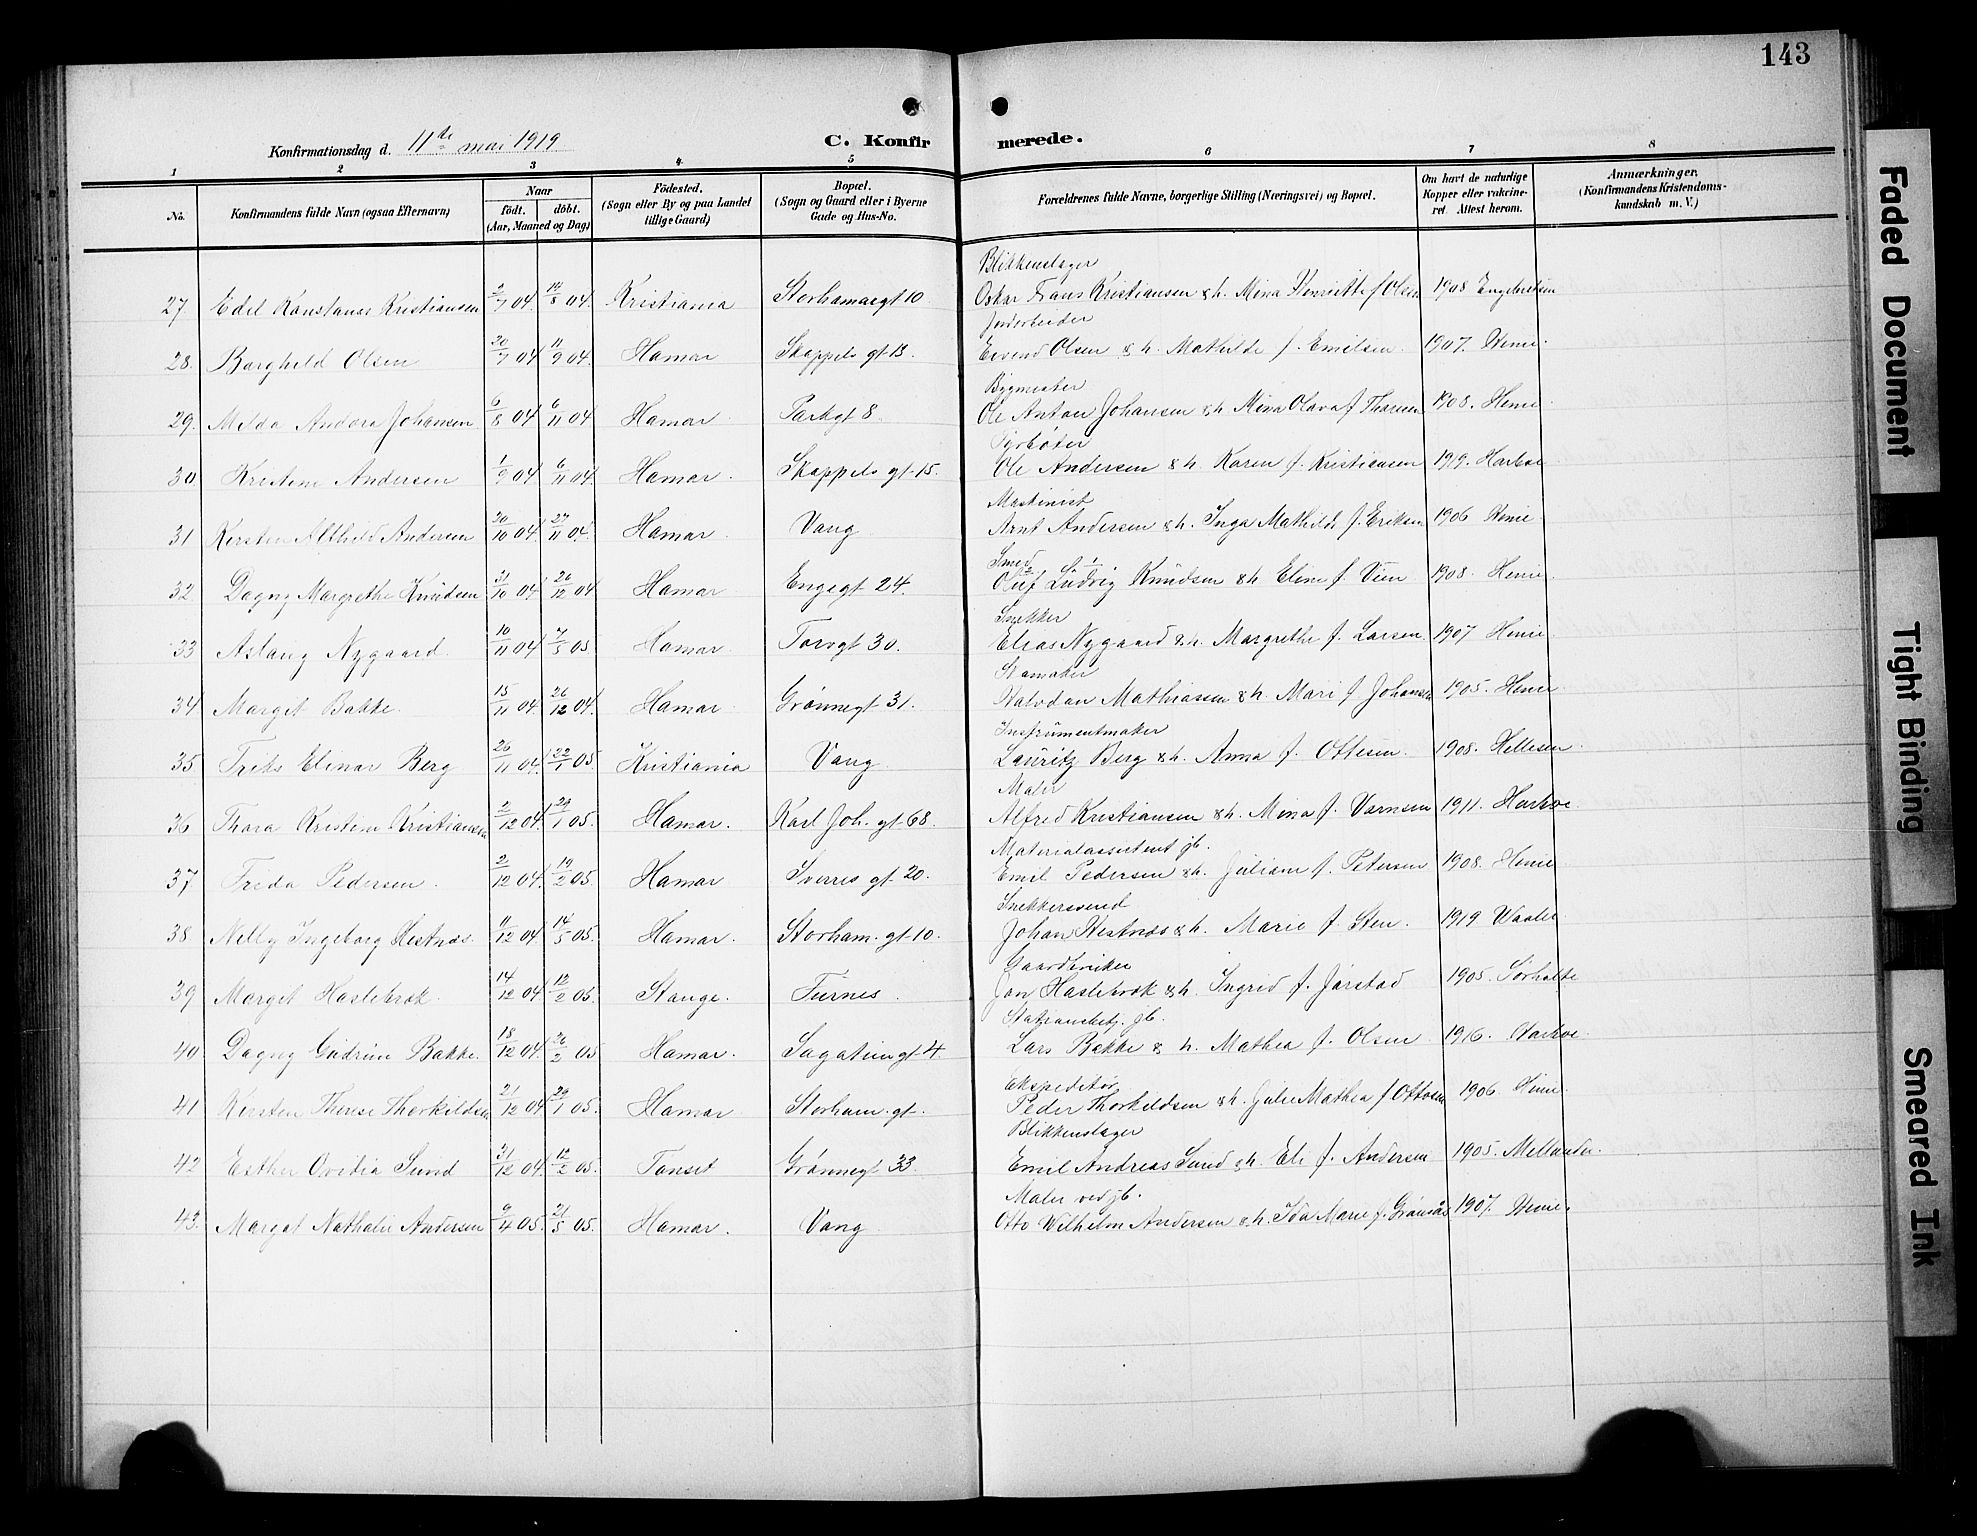 143
Konfirmationsdag d. 11te mai 1919 C. Konfirmerede.
1 2 3 4 5 6 7 8
No. Konfirmandens fulde Navn (ogsaa Efternavn) Naar født. døbt. (Aar, Maaned og Dag) Fødested. (Sogn eller By og paa Landet tillige Gaard) Bopæl. (Sogn og Gaard eller i Byerne Gade og Hus-No. Forældrenes fulde Navne, borgerlige Stilling (Næringsvei) og Bopæl. Om havt de naturlige Kopper eller vakcineret Attest herom. Anmærkninger, (Konfirmandens Kristendomskundskab m. V.)
Blikkenslager
27 Edel Konstanse Kristiansen 2/7 04. 14/8 04. Kristiania Storhamargt 10 Oskar Frans Kristiansen & h. Mina Henriette f. Olsen 1908 Engebretsen
Jordarbeider
28. Borghild Olsen 20/7 04 11/9 04. Hamar Skappels gt 13. Eivend Olsen & h. Mathilde f. Emilsen. 1907. Henie.
Bygmester
29. Milda Andora Johansen 6/8 04 6/11 04. Hamar. Parkgt 8 Ole Anton Johansen & h. Mina Olava f. Thoresen 1908. Henie.
Fyrbøter
30. Kristine Andersen 1/9 04 6/11 04. Hamar. Skappels gt 15. Ole Andersen & h. Karen f. Kristiansen 1919. Harboe
Maskinist
31 Kersten Alfhild Andersen 20/10 04. 27/11 04. Hamar. Vang Arnt Andersen & h. Inga Mathilde f. Eriksen 1906 Henie.
Smed
32 Dagny Margrethe Knudsen 31/10 04 26/12 04 Hamar Engegt 24. Oluf Ludvig Knudsen & h. Eline f. Vien 1908. Henie.
Snekker
33 Aslaug Nygaard. 10/11 04 7/5 05. Hamar. Torvgt 30. Elias Nygaard & h. Margrethe f. Larsen. 1907 Henie.
Skomaker
34 Margit Bakke. 15/11 04. 26/12 04. Hamar. Grønnegt 31. Halvdan Mathiassen & h. Mari f. Johansen 1905. Henie.
Instrumentmaker
35 Frits Elinar Berg 26/11 04. 22/1 05. Kristiania Vang. Lauritz Berg & h. Anna f. Ottesen. 1908. Hellesen.
Maler
36 Thora Kristine Kristiansen 2/12 04. 29/1 05. Hamar. Karl Joh. gt 68. Alfred Kristiansen & h. Mina f. Varnsen 1911. Harboe
Materialassistent jb.
37 Frida Pedersen. 2/12 04. 19/2 05. Hamar Sverres gt 20. Emil Pedersen & h. Juliane f. Petersen 1908. Henie
Snekkersvend
38 Nelly Ingeborg Hestnæs. 11/12 04. 14/5 05. Hamar. Storham. gt 10. Johan Hestnæs & h. Marie f. Sten. 1919 Waaler
Gaardbruker
39 Margit Haslebrok. 14/12 04. 12/2 05. Stange. Furnes. Jon Haslebrok & h. Ingrid f. Jorstad 1905. Sørholte
Stationsbetj. jb.
40 Dagny Gudrun Bakke. 18/12 04. 26/2 05 Hamar. Sagatun gt 4. Lars Bakke & h. Mathea f. Olsen 1916. Harboe.
Ekspeditør
41 Kersten Therese Thorkildsen 21/12 04 29/1 05. Hamar Storham. gt. Peder Thorkildsen & h. Julie Mathea f. Ottosen 1906. Henie
Blikkenslager
42 Esther Ovidia Sund 31/12 04. 12/2 05. Tonset Grønnegt 33. Emil Andreas Sund & h. Eli f. Andersen 1905. Mellander.
Maler ved jb.
43. Margot Nathalie Andersen 9/4 05. 21/5 05. Hamar. Vang. Otto Wilhelm Andersen & h. Ida Marie f. Grønsås 1907. Henie.
Faded Document
Tight Binding
Smeared Ink